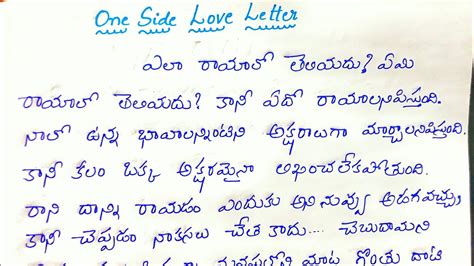 One Side Love Letter
ఎలా రాయాలో తెలియదు? ఏమి
రాయాలో తెలియదు? కానీ ఏదో రాయాలనిపిస్తుంది.
నాలో ఉన్న భావాలన్నింటిని అక్షరాలుగా మార్చాలనిపిస్తుంది.
కానీ కలం ఒక్క అక్షరమైనా లిఖించలేకపోతుంది.
రాని దాన్ని రాయడం ఎందుకు అని నువ్వు అడగవచ్చు,
కానీ చెప్పడం నాకసలు చేత కాదు.... చెబుదామని
మాట గొంతు దాటి